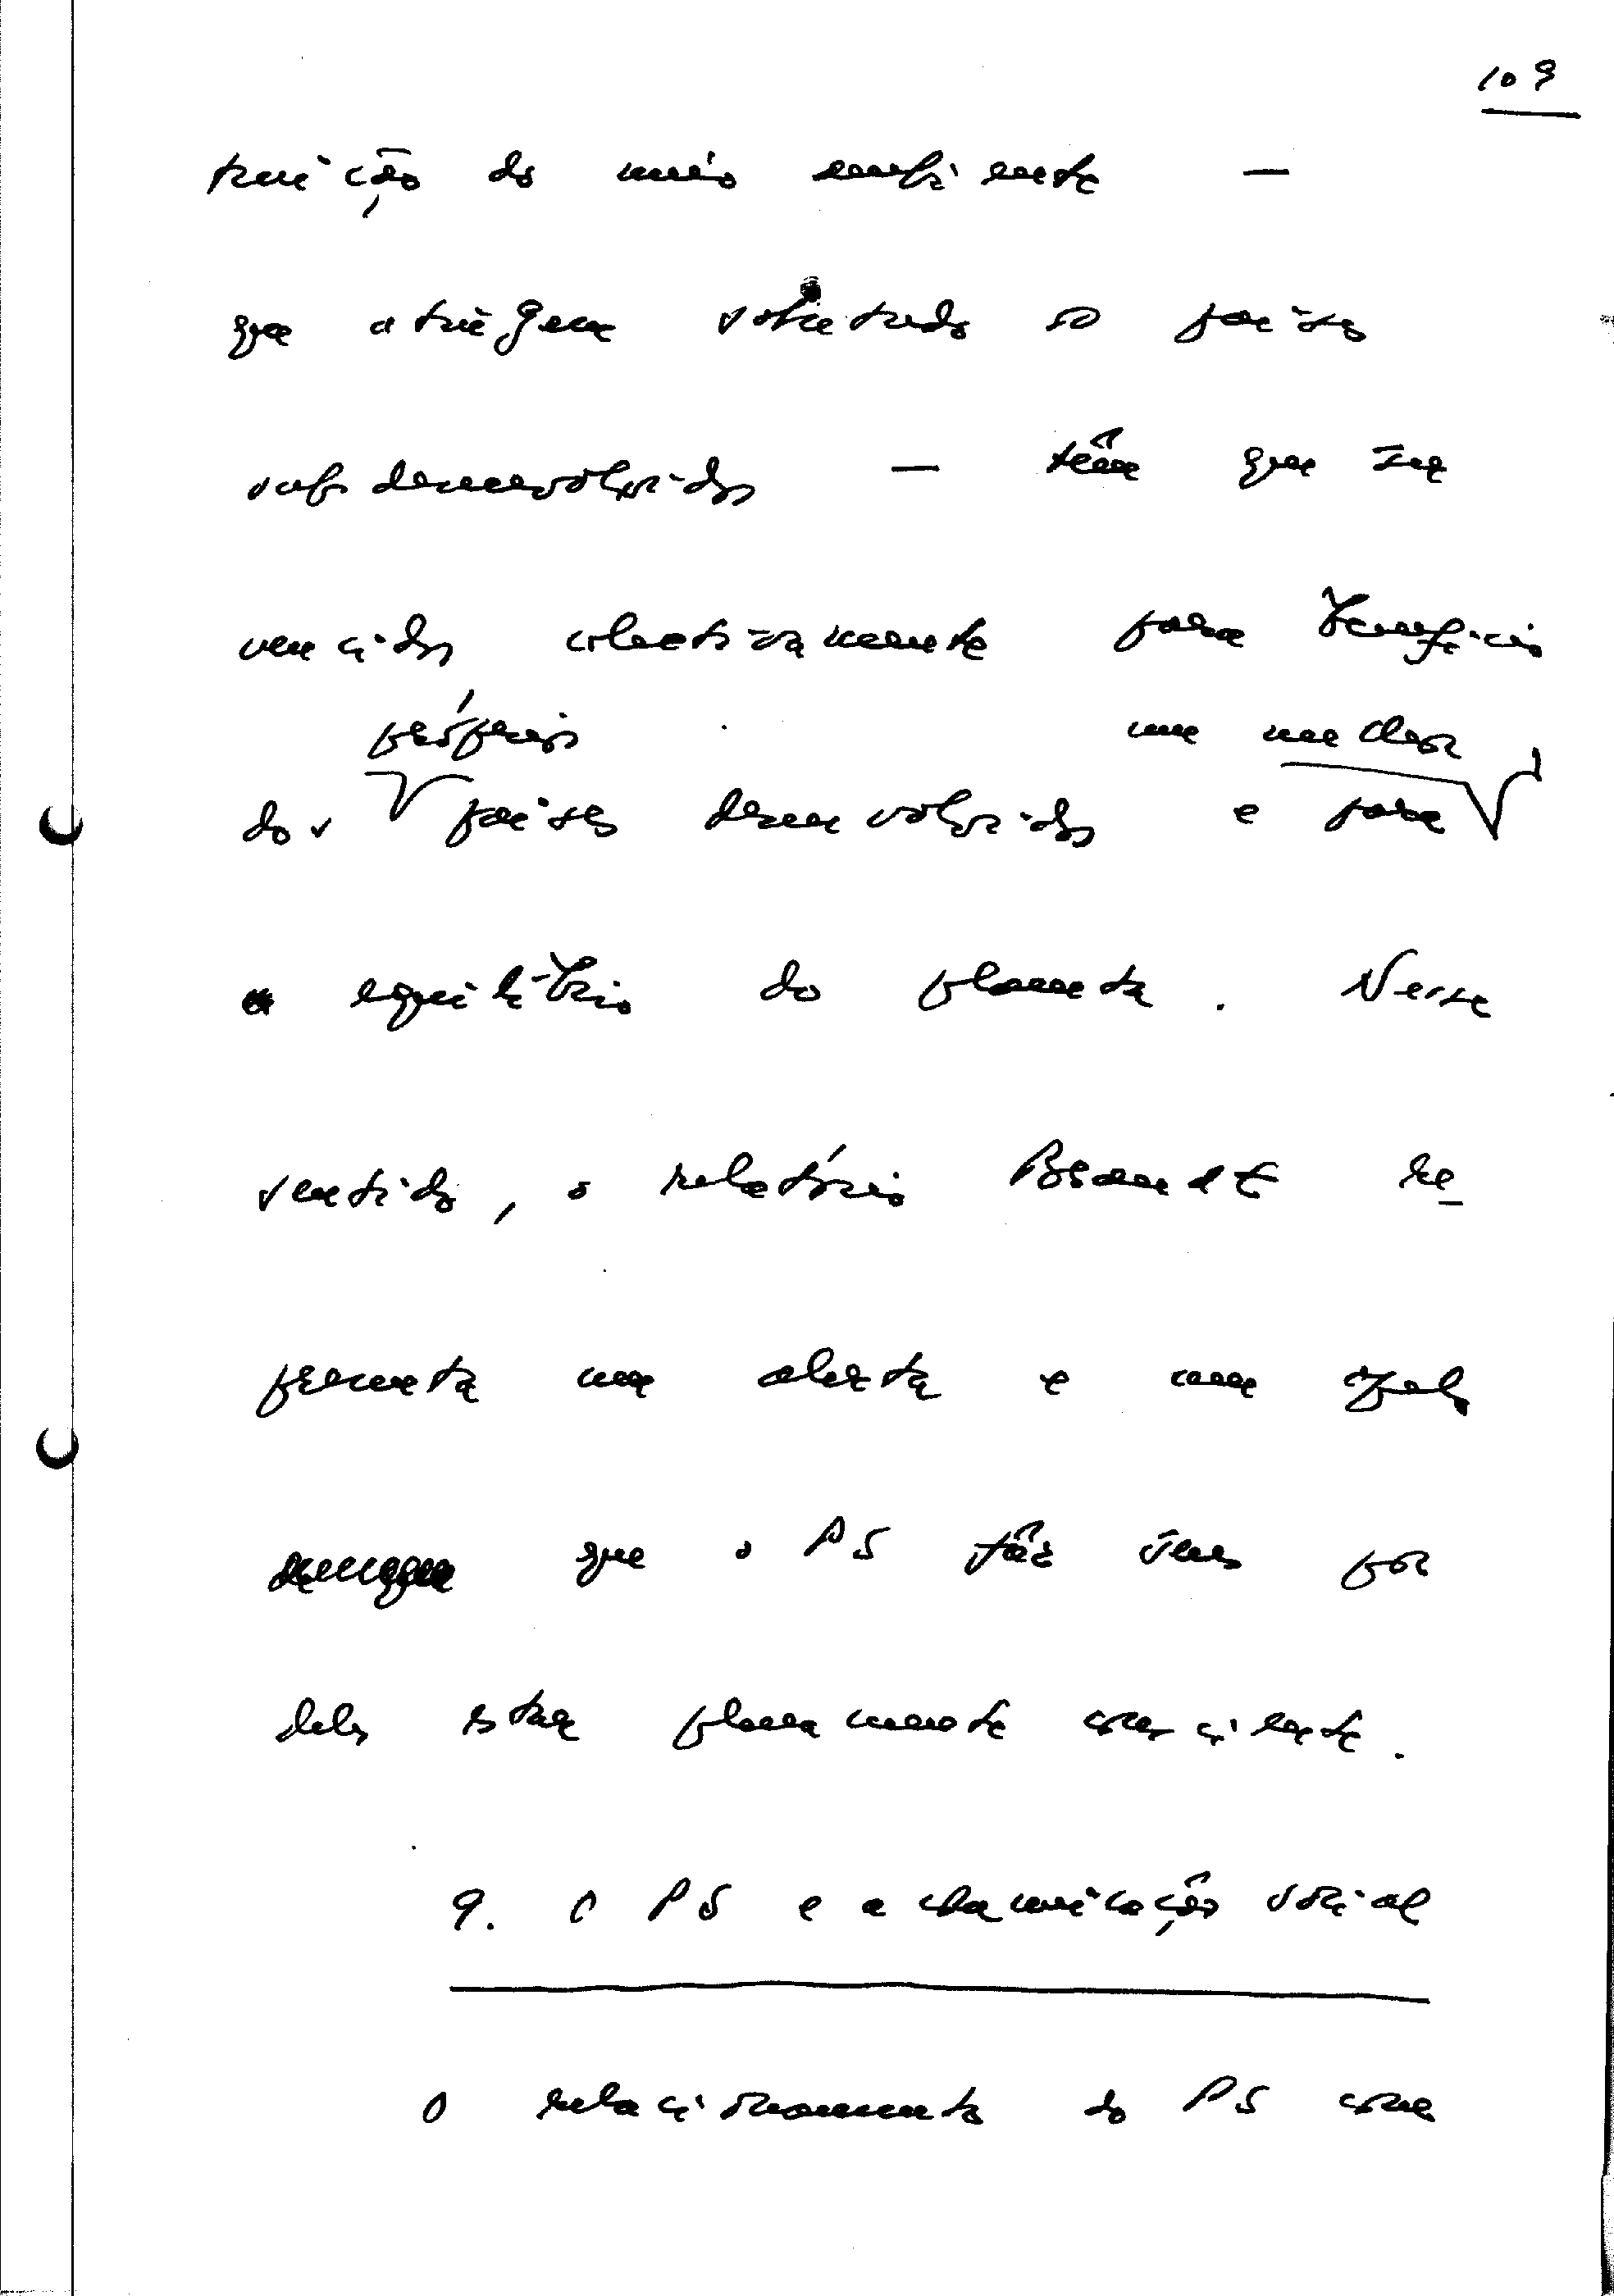 109
truição do meio ambiente —
que atingem sobretudo os países
subdesenvolvidos — têm que ser
vencidos colectivamente para benefício
próprios um melhor
dos países desenvolvidos e para
equilíbrio do planeta. Nesse
sentido, o relatório Brandt re-
presenta um alerta e um apelo
que o PS fez seus por
deles estar plenamente consciente.
9. O PS e a comunicação social
O relacionamento do PS com